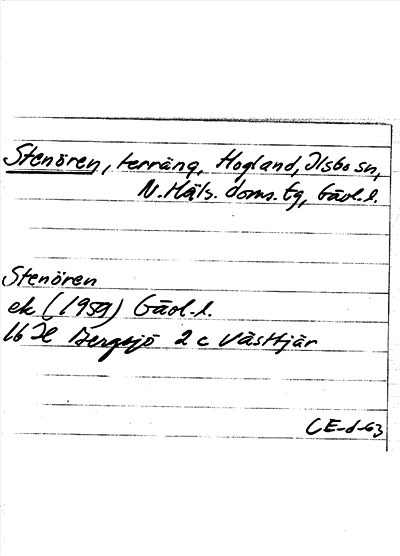 Stenören, terräng, Hogland, Ilsbo sn,
N. Häls. doms. tg, Gävl. l.
Stenören
ek (1959) Gävl. l.
16 H Bergsjö 2 c Västtjär
CE-d-63